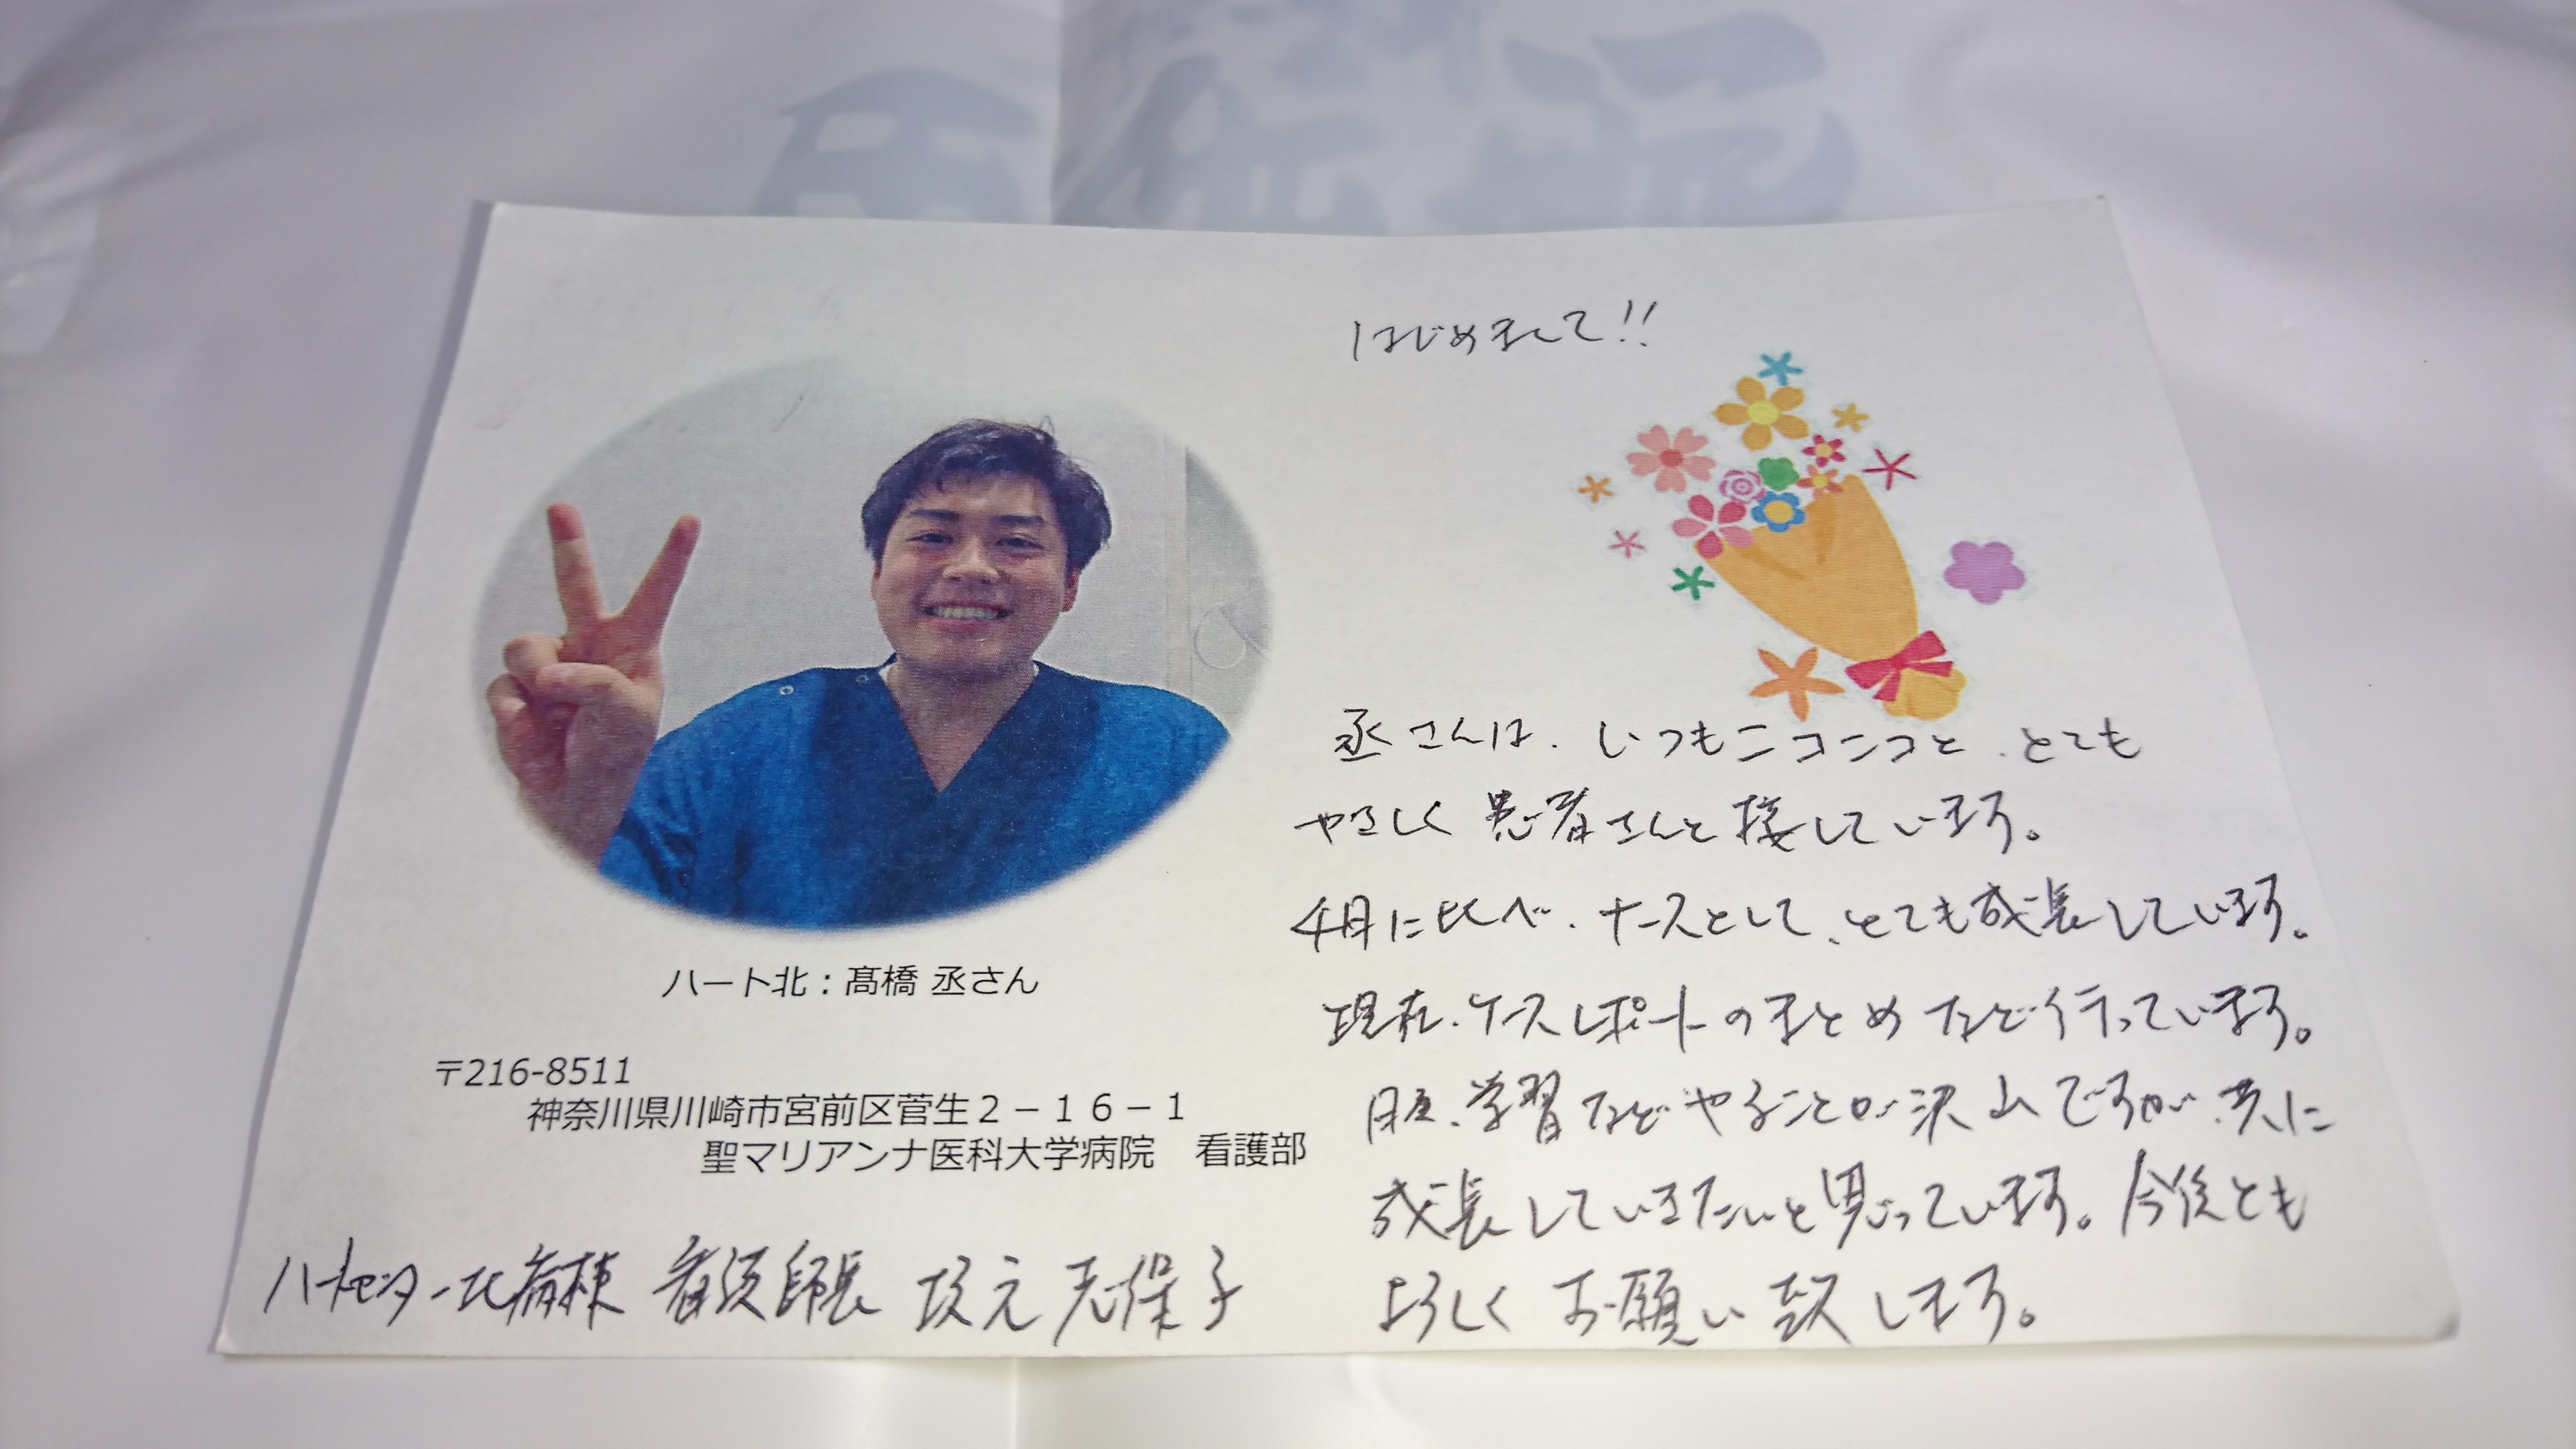 はじめまして!!
丞さんは、いつもニコニコと、とても
やさしく患者さんと接しています。
4月に比べ、ナースとして、とても成長しています。
現在、ケースレポートのまとめなど行っています。
日々、学習などやることが沢山ですが、共に
成長していきたいと思っています。今後とも
よろしくお願い致します。
ハート北：髙橋 丞さん
〒216-8511
神奈川県川崎市宮前区菅生２－１６－１
聖マリアンナ医科大学病院　看護部
ハートセンター北病棟 看護師長 坂元志保子